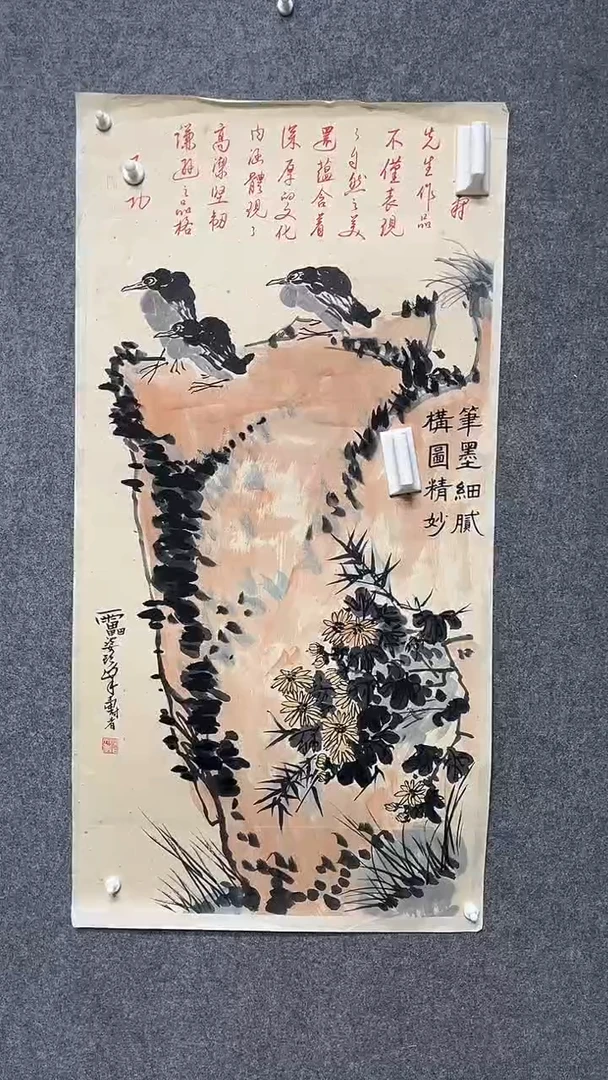 先生作品
不僅表現
了自然之美
還蘊含着
深厚的文化
内涵體現了
高潔堅韌
謙遜之品格
功
筆墨細膩
構圖精妙
雷婆頭峰壽者